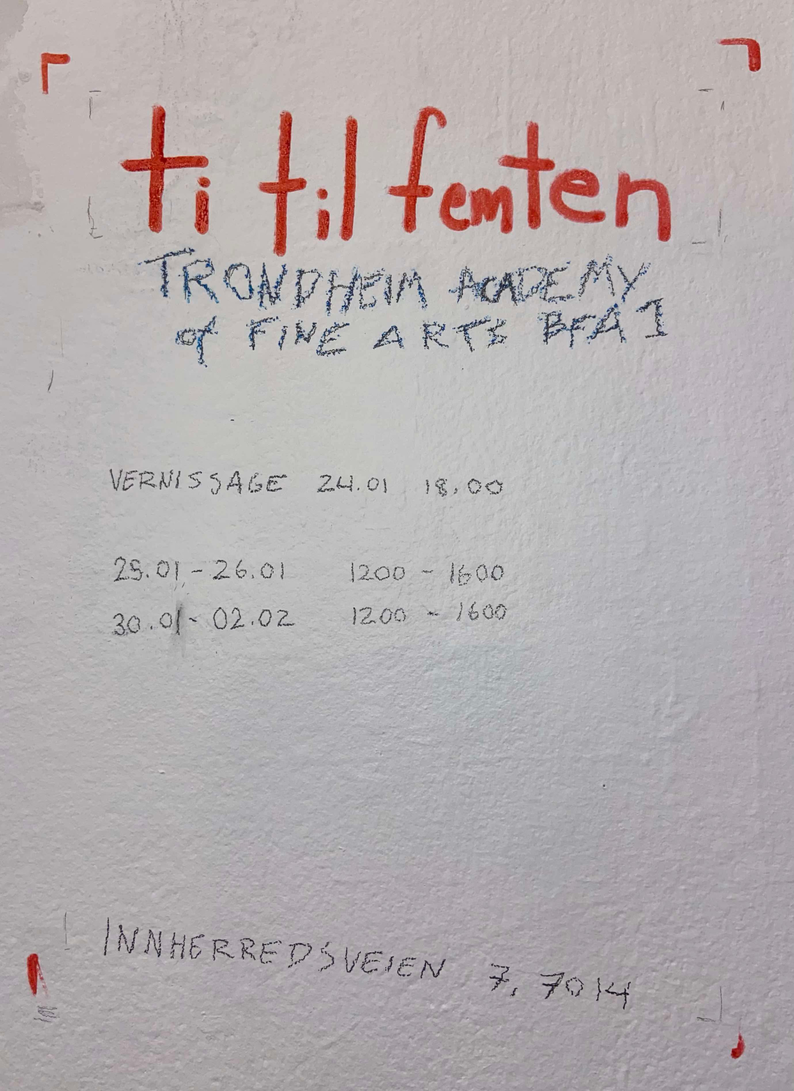 ti til femten
TRONDHEIM ACADEMY
of FINE ARTS BFA 1
VERNISSAGE 24.01 18.00
25.01 - 26.01 1200 - 1600
30.01 - 02.02 1200 - 1600
INNHERREDSVEIEN 7, 7014